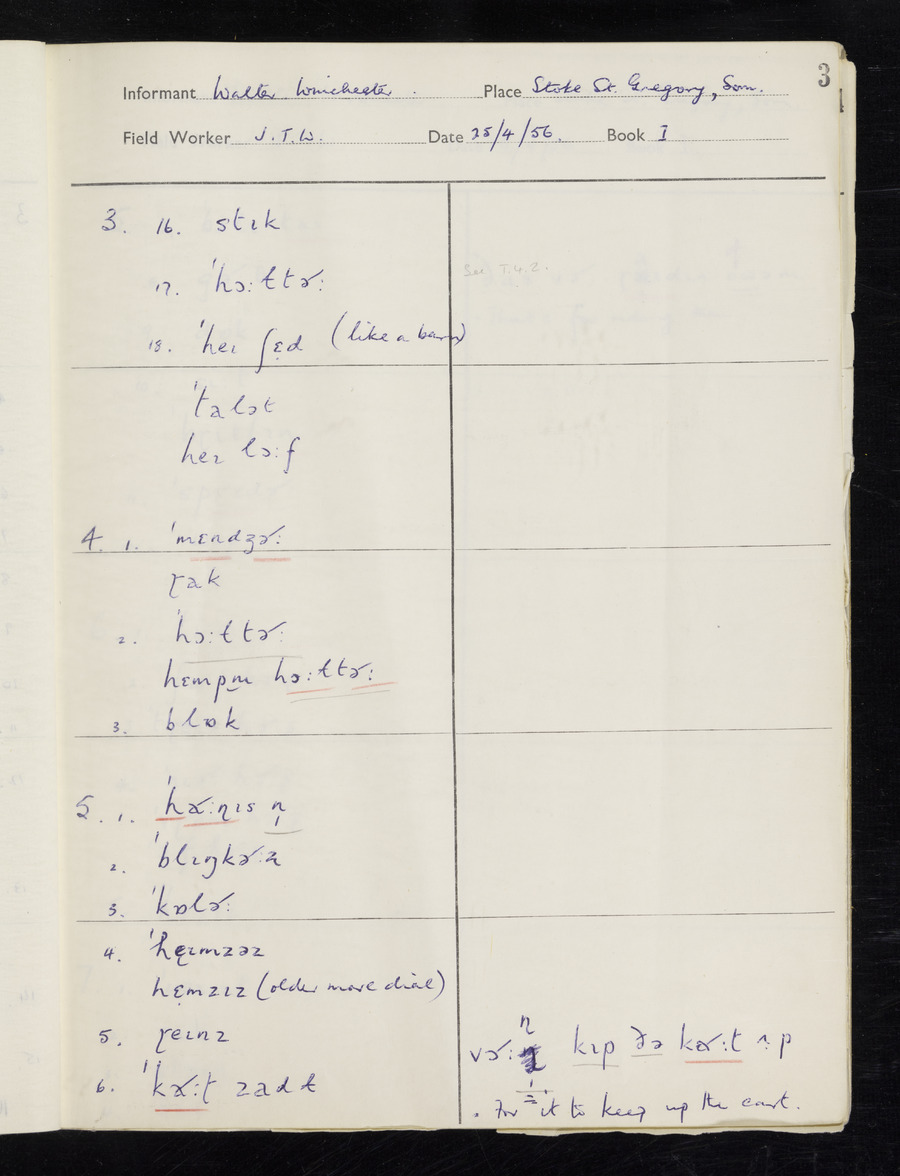 3
Informant Walter Winchester . Place Stoke St. Gregory, Som.
Field Worker J.T.W. Date 25/4/56. Book I
3. 16. stɪk
17. ˈhɔ:ltɚ: See I.4.2.
18. ˈheɪ ʃɛd (like a barn)
ˈtalət
heɪ lɔ:f
4. 1. ˈmɛndʒɚ:
ɽak
2. ˈhɔ:ltɚ:
hɛmpm hɔ:ltɚ:
3. blɒk
5. 1. ˈhɚ:ɳɪs ɳ
2. ˈblɪŋkɚ:z
3. ˈkɒlɚ:
4. ˈhɛɪmzəz
hɛmzɪz (older more dial)
5. ɽeɪnz
6. ˈkɚ:ʈ zadɫ
vɚ: ɳ kɪp ðə kɚ:ʈ ʌp
. For it to keep up the cart.